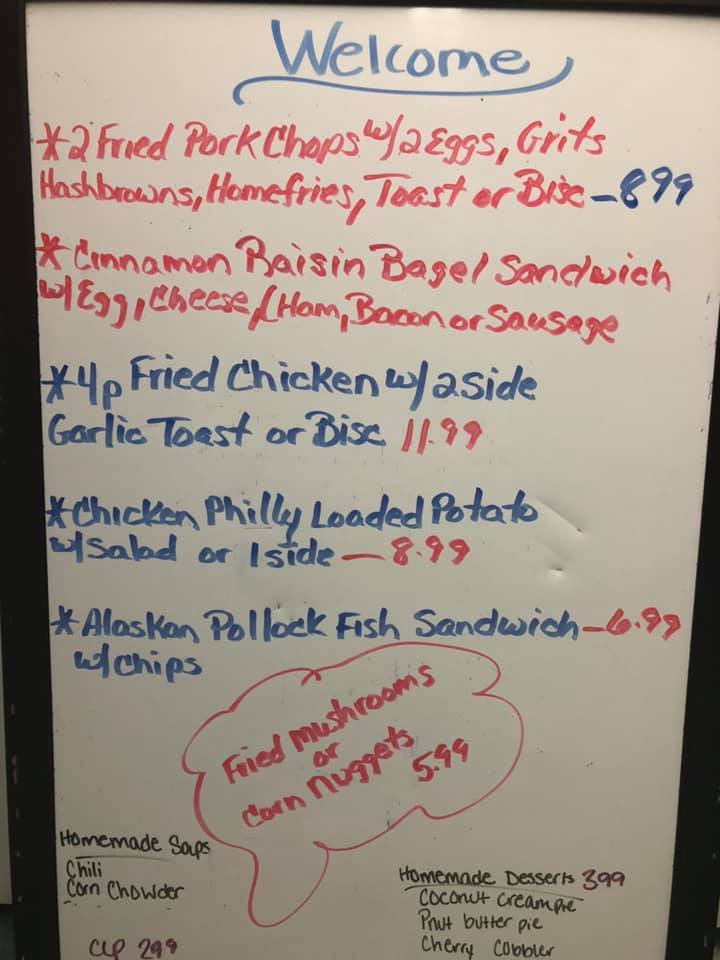 Welcome
*2 Fried Pork Chops w/2 Eggs, Grits
Hashbrowns, Homefries, Toast or Bisc - 899
*Cinnamon Raisin Bagel Sandwich
w/Egg, Cheese, (Ham, Bacon or Sausage
*4p Fried Chicken w/2 Side
Garlic Toast or Bisc 11.99
*Chicken Philly Loaded Potato
w/Salad or 1 side - 8.99
*Alaskan Pollock Fish Sandwich - 6.99
w/chips
Fried Mushrooms
or
Corn Nuggets 5.99
Homemade Soups
Chili
Corn Chowder
Cup 299
Homemade Desserts 399
Coconut Creampie
Pnut butter pie
Cherry Cobbler